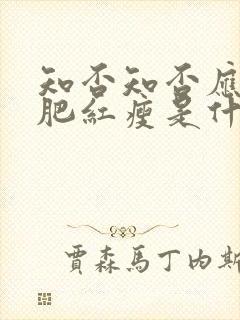 知否知否應
肥紅瘦是什
賈森馬丁內斯